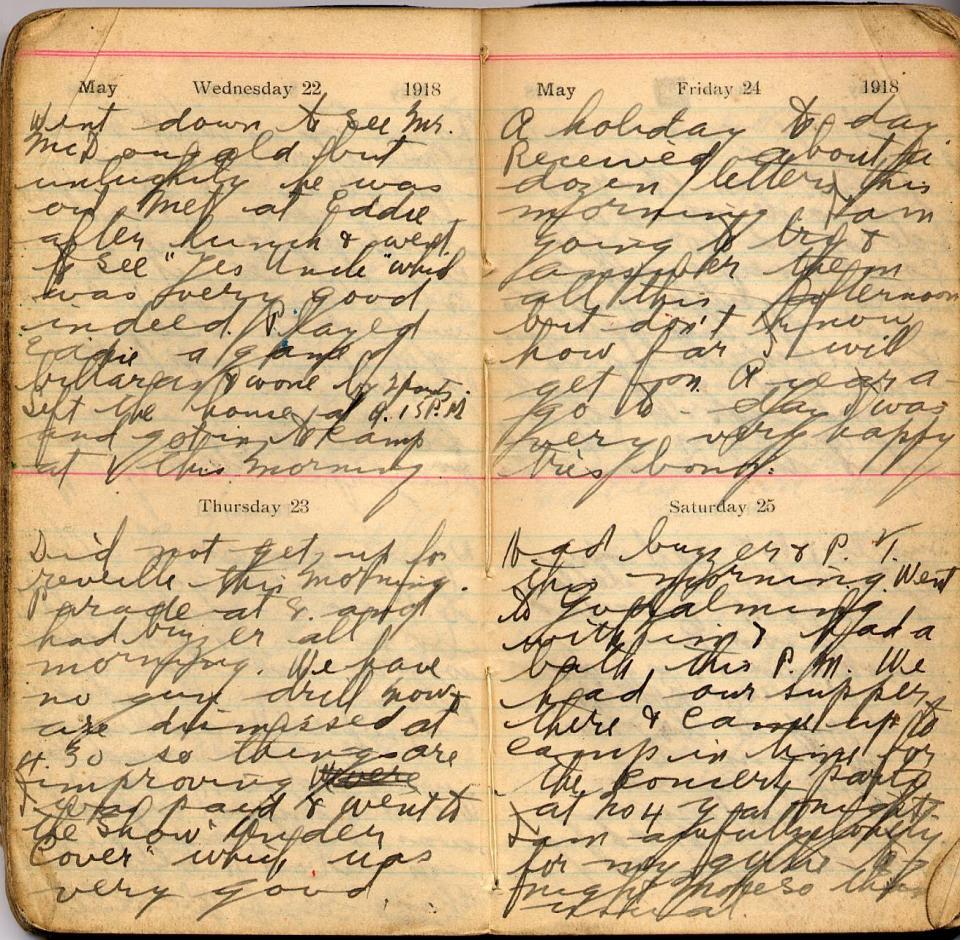 May Wednesday 22 1918
Went down to see Mr.
McDougald but
unluckily he was
out. Met at Eddie
after lunch & went
to see "Yes Uncle" which
was very good
indeed. Played
Eddie a game of
billards & wone by
Left the house at 4.15 P.M
and got in to camp
at 1 this morning
Thursday 23
Did not get up for
reveille this morning.
Parade at 8. and
had buzzer all
morning. We have
no gun drill now
are dismissed at
4.30 so things are
improving
I was paid & went to
the show "Under
Cover" which was
very good.
May Friday 24 1918
A holiday to day.
Received about a
dozen letters this
morning I am
going to try &
answer them
all this afternoon
but don't know
how far I will
get on. A year a-
go to-day I was
very very happy
Saturday 25
Had buzzer & P. T.
this morning. Went
to Godalming
with & had a
bath this P.M. We
had our supper
there & came up to
camp in time for
the concert party
at no 4 Y at night.
I am awfully lonely
for my to
night more so than
usual.